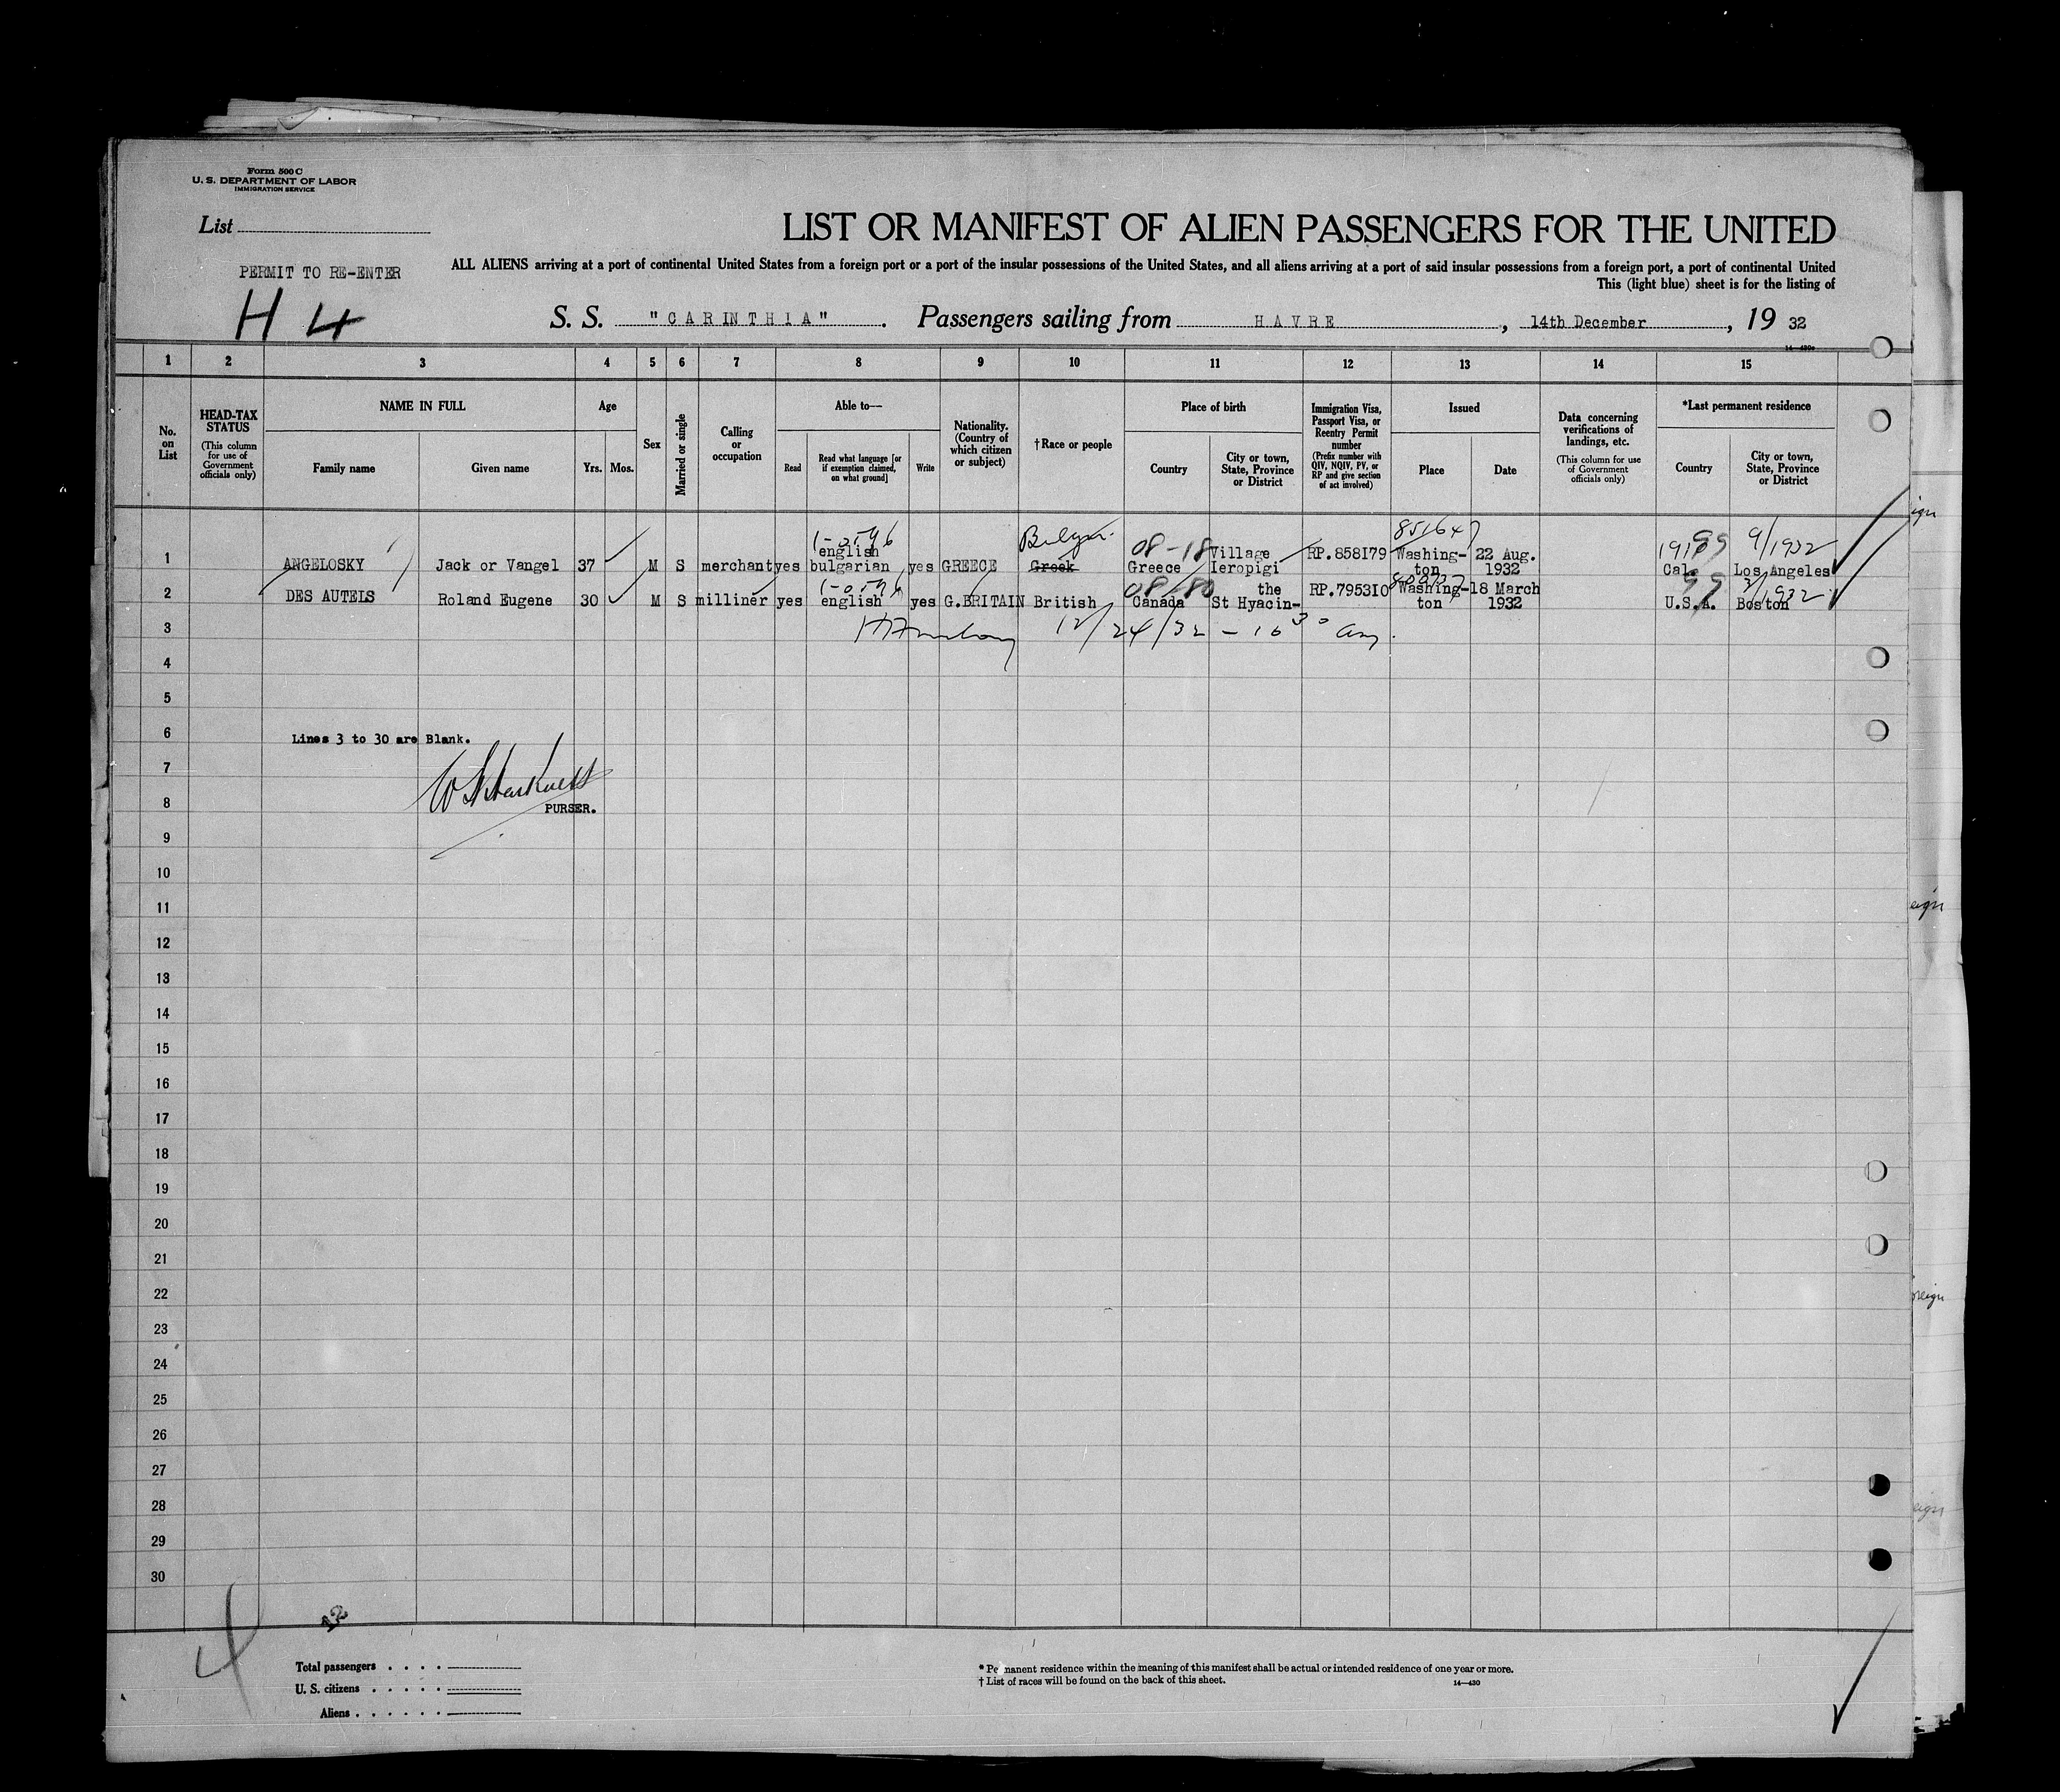 Form 500 C
U. S. DEPARTMENT OF LABOR
IMMIGRATION SERVICE
List
LIST OR MANIFEST OF ALIEN PASSENGERS FOR THE UNITED
PERMIT TO RE-ENTER
ALL ALIENS arriving at a port of continental United States from a foreign port or a port of the insular possessions of the United States, and all aliens arriving at a port of said insular possessions from a foreign port, a port of continental United
This (light blue) sheet is for the listing of
H 4
S. S. "CARINTHIA". Passengers sailing from HAVRE, 14th December, 19 32
1 2 3 4 5 6 7 8 9 10 11 12 13 14 15
No. on List
HEAD-TAX STATUS (This column for use of Government officials only)
NAME IN FULL
Family name
Given name
Age
Yrs. Mos.
Sex
Married or single
Calling or occupation
Able to—
Read
Read what language [or if exemption claimed, on what ground]
Write
Nationality. (Country of which citizen or subject)
†Race or people
Place of birth
Country
City or town, State, Province or District
Immigration Visa, Passport Visa, or Reentry Permit number (Prefix number with QIV, NQIV, PV, or RP and give section of act involved)
Issued
Place
Date
Data concerning verifications of landings, etc. (This column for use of Government officials only)
*Last permanent residence
Country
City or town, State, Province or District
1 ANGELOSKY Jack or Vangel 37 M S merchant yes english bulgarian yes GREECE Greek 08-18 Greece Village Ieropigi RP.858179 Washington 22 Aug. 1932 Cal. Los Angeles 9/1932
2 DES AUTELS Roland Eugene 30 M S milliner yes english yes G.BRITAIN British Canada St Hyacin-the RP.795310 Washington 18 March 1932 U.S.A. Boston 3/1932
3 12/24/32
4
5
6 Lines 3 to 30 are Blank.
7
8 PURSER.
9
10
11
12
13
14
15
16
17
18
19
20
21
22
23
24
25
26
27
28
29
30
Total passengers . . . .
U. S. citizens . . . . .
Aliens . . . . . .
* Permanent residence within the meaning of this manifest shall be actual or intended residence of one year or more.
† List of races will be found on the back of this sheet.
14—430